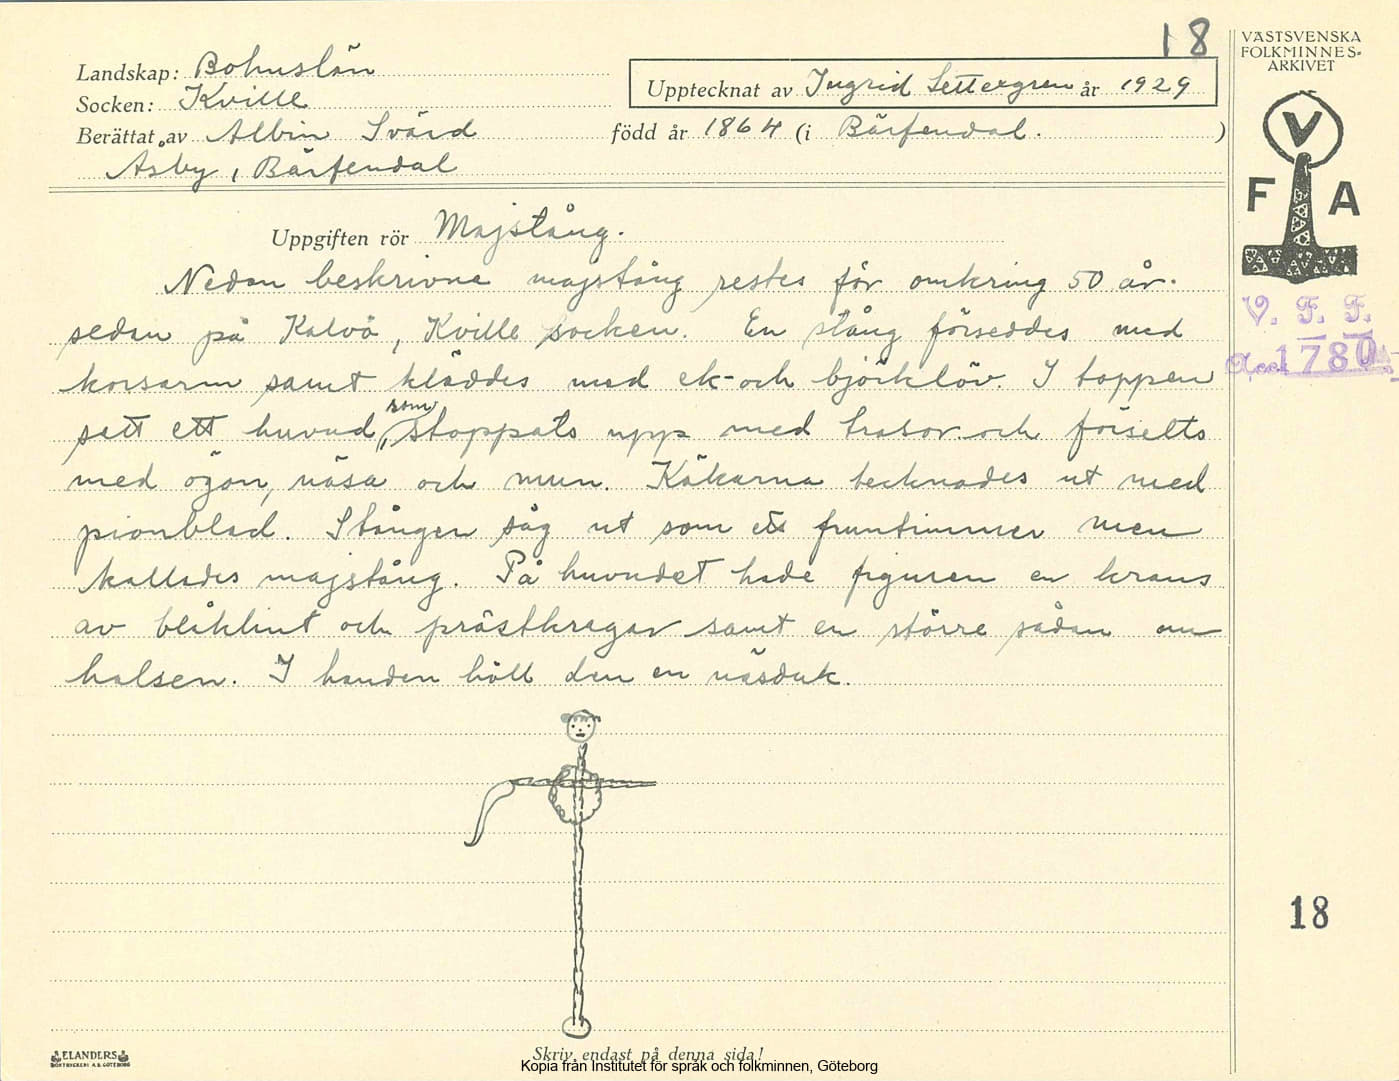 18
VÄSTSVENSKA
FOLKMINNES-
ARKIVET
Landskap: Bohuslän
Socken: Kville
Upptecknat av Ingrid Settergren år 1929
Berättat av Albin Svärd född år 1864 (i Bärfendal.)
Åsby, Bärfendal
V
F A
Uppgiften rör Majstång.
Nedan beskrivna majstång restes för omkring 50 år
sedan på Kalvö, Kville socken. En stång förseddes med
korsarm samt kläddes med ek- och björklöv. I toppen
satt ett huvud, som stoppats upp med trasor och försetts
med ögon, näsa och mun. Käkarna tecknades ut med
pionblad. Stången såg ut som ett fruntimmer men
kallades majstång. På huvudet hade figuren en krans
av blåklint och prästkragar samt en större sådan om
halsen. I handen höll den en näsduk.
V. F. F.
Acc. 1780
18
ELANDERS
BOKTRYCKERI A.B. GÖTEBORG
Skriv endast på denna sida!
Kopia från Institutet för språk och folkminnen, Göteborg